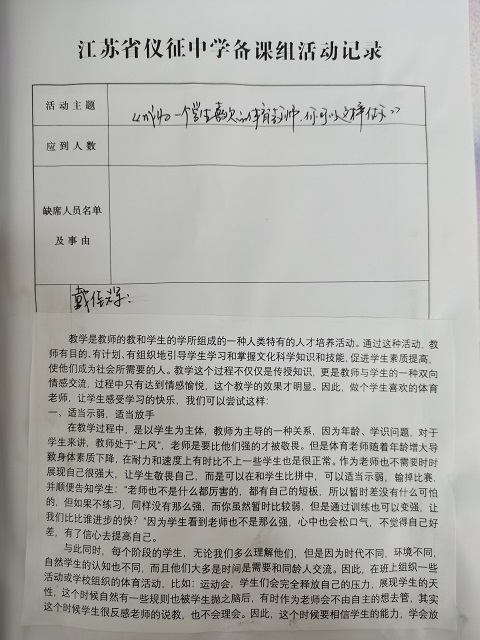 江苏省仪征中学备课组活动记录
活动主题
《成为一个学生喜欢的体育老师,你可以这样做》
应到人数
缺席人员名单
及事由
教学是教师的教和学生的学所组成的一种人类特有的人才培养活动。通过这种活动,教
师有目的、有计划、有组织地引导学生学习和掌握文化科学知识和技能,促进学生素质提高,
使他们成为社会所需要的人。教学这个过程不仅仅是传授知识,更是教师与学生的一种双向
情感交流,过程中只有达到情感愉悦,这个教学的效果才明显。因此,做个学生喜欢的体育
老师,让学生感受学习的快乐,我们可以尝试这样:
一、适当示弱,适当放手
在教学过程中,是以学生为主体,教师为主导的一种关系,因为年龄、学识问题,对于
学生来讲,教师处于“上风”,老师是要比他们强的才被敬畏。但是体育老师随着年龄增大导
致身体素质下降,在耐力和速度上有时比不上一些学生也是很正常。作为老师也不需要时时
展现自己很强大,让学生敬畏自己,而是可以在和学生比拼中,可以适当示弱,输掉比赛,
并顺便告知学生:“老师也不是什么都厉害的,都有自己的短板,所以暂时差没有什么可怕
的,但如果不练习,同样没有那么强,而你虽然暂时比较弱,但是通过训练也可以变强,让
我们比比谁进步的快?”因为学生看到老师也不是那么强,心中也会松口气,不觉得自己好
差,有了信心去提高自己。
与此同时,每个阶段的学生,无论我们多么理解他们,但是因为时代不同,环境不同,
自然学生的认知也不同,而且他们大多是时间是需要和同龄人交流。因此,在班上组织一些
活动或学校组织的体育活动,比如:运动会,学生们会完全释放自己的压力,展现学生的天
性,这个时候自然有一些规则也被学生抛之脑后,有时作为老师会不由自主的想去管,其实
这个时候学生很反感老师的说教,也不会理会。因此,这个时候要相信学生的能力,学会放